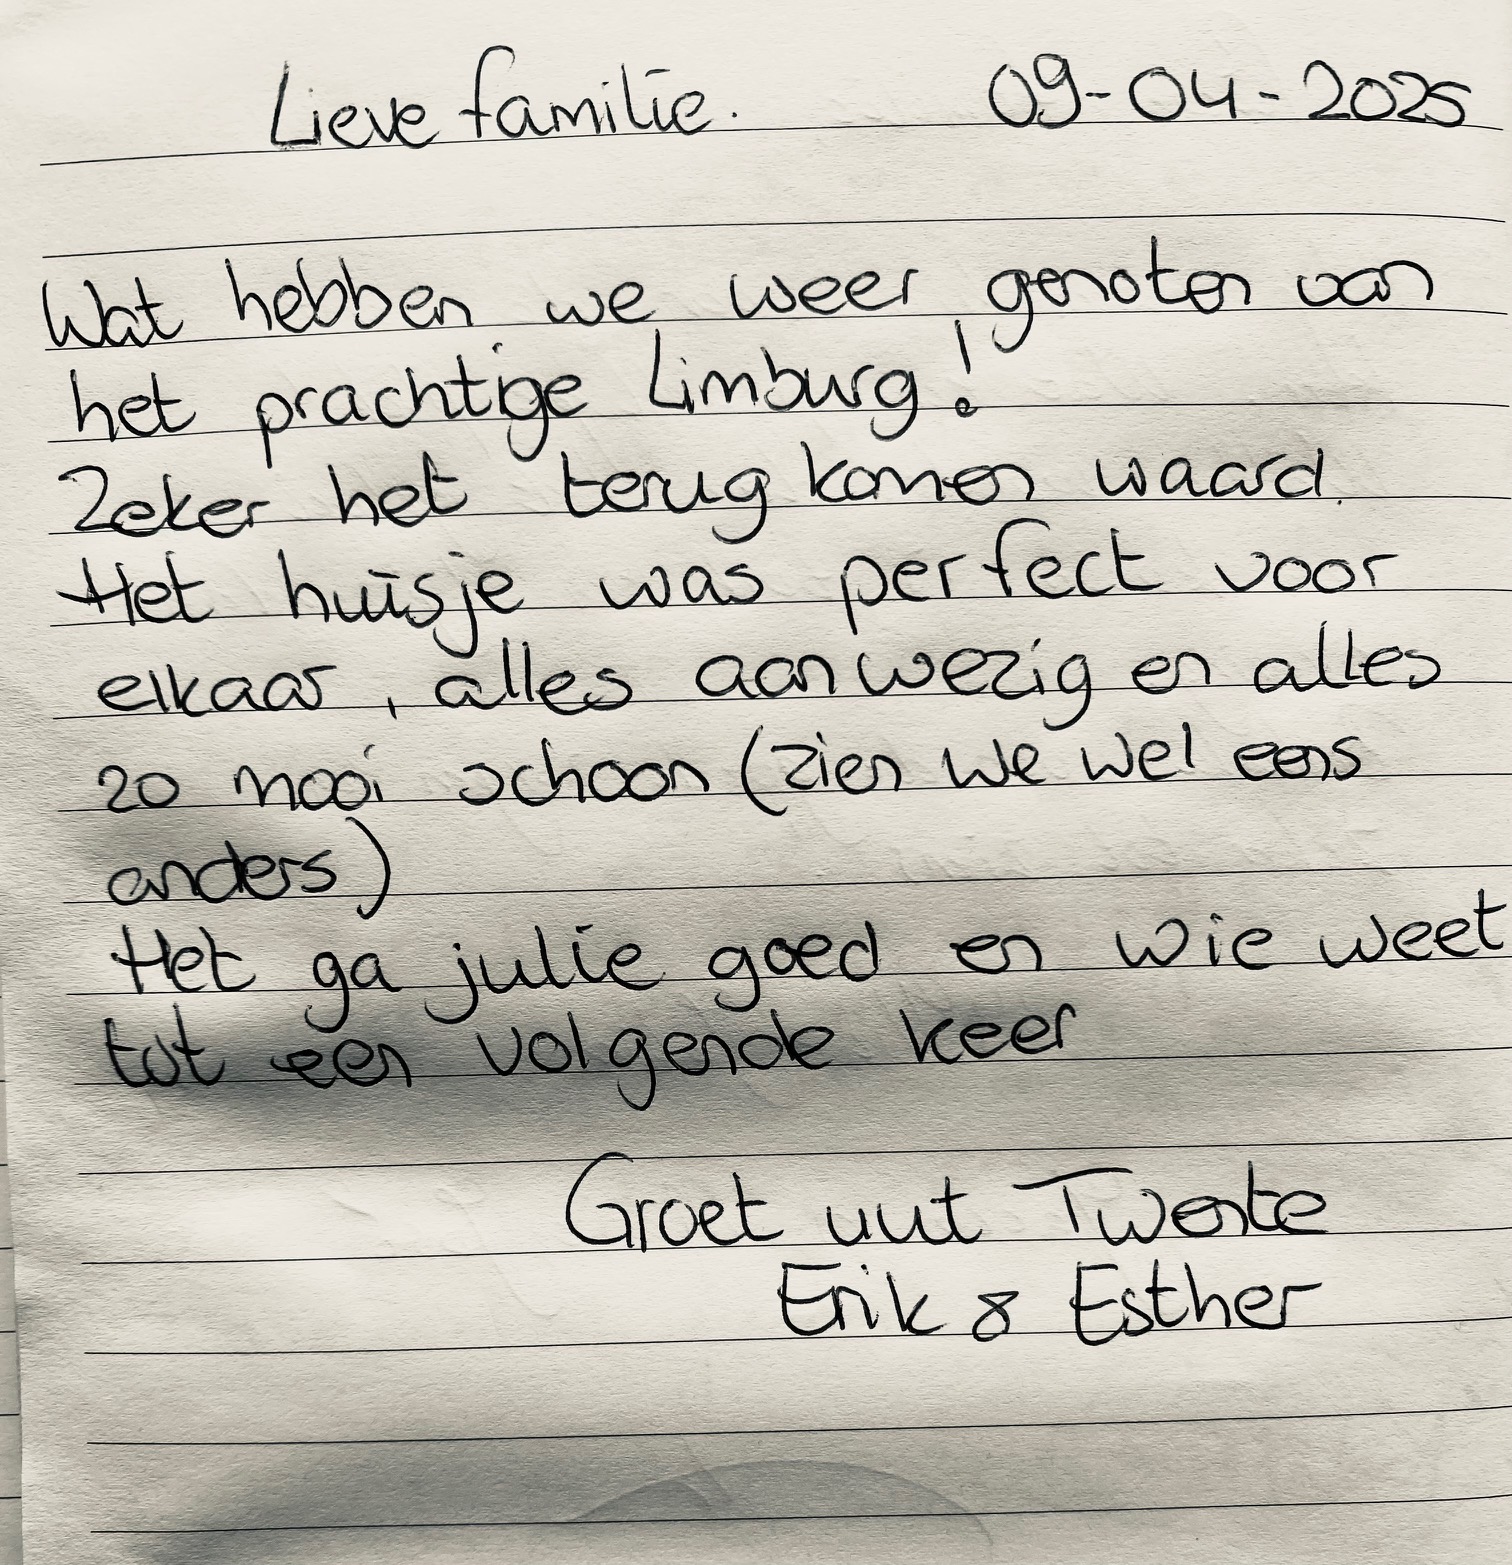 Lieve familie. 09-04-2025
Wat hebben we weer genoten van
het prachtige Limburg!
Zeker het terug komen waard.
Het huisje was perfect voor
elkaar, alles aanwezig en alles
zo mooi schoon (zien we wel eens
anders)
Het ga julie goed en wie weet
tot een volgende keer
Groet uut Twente
Erik & Esther